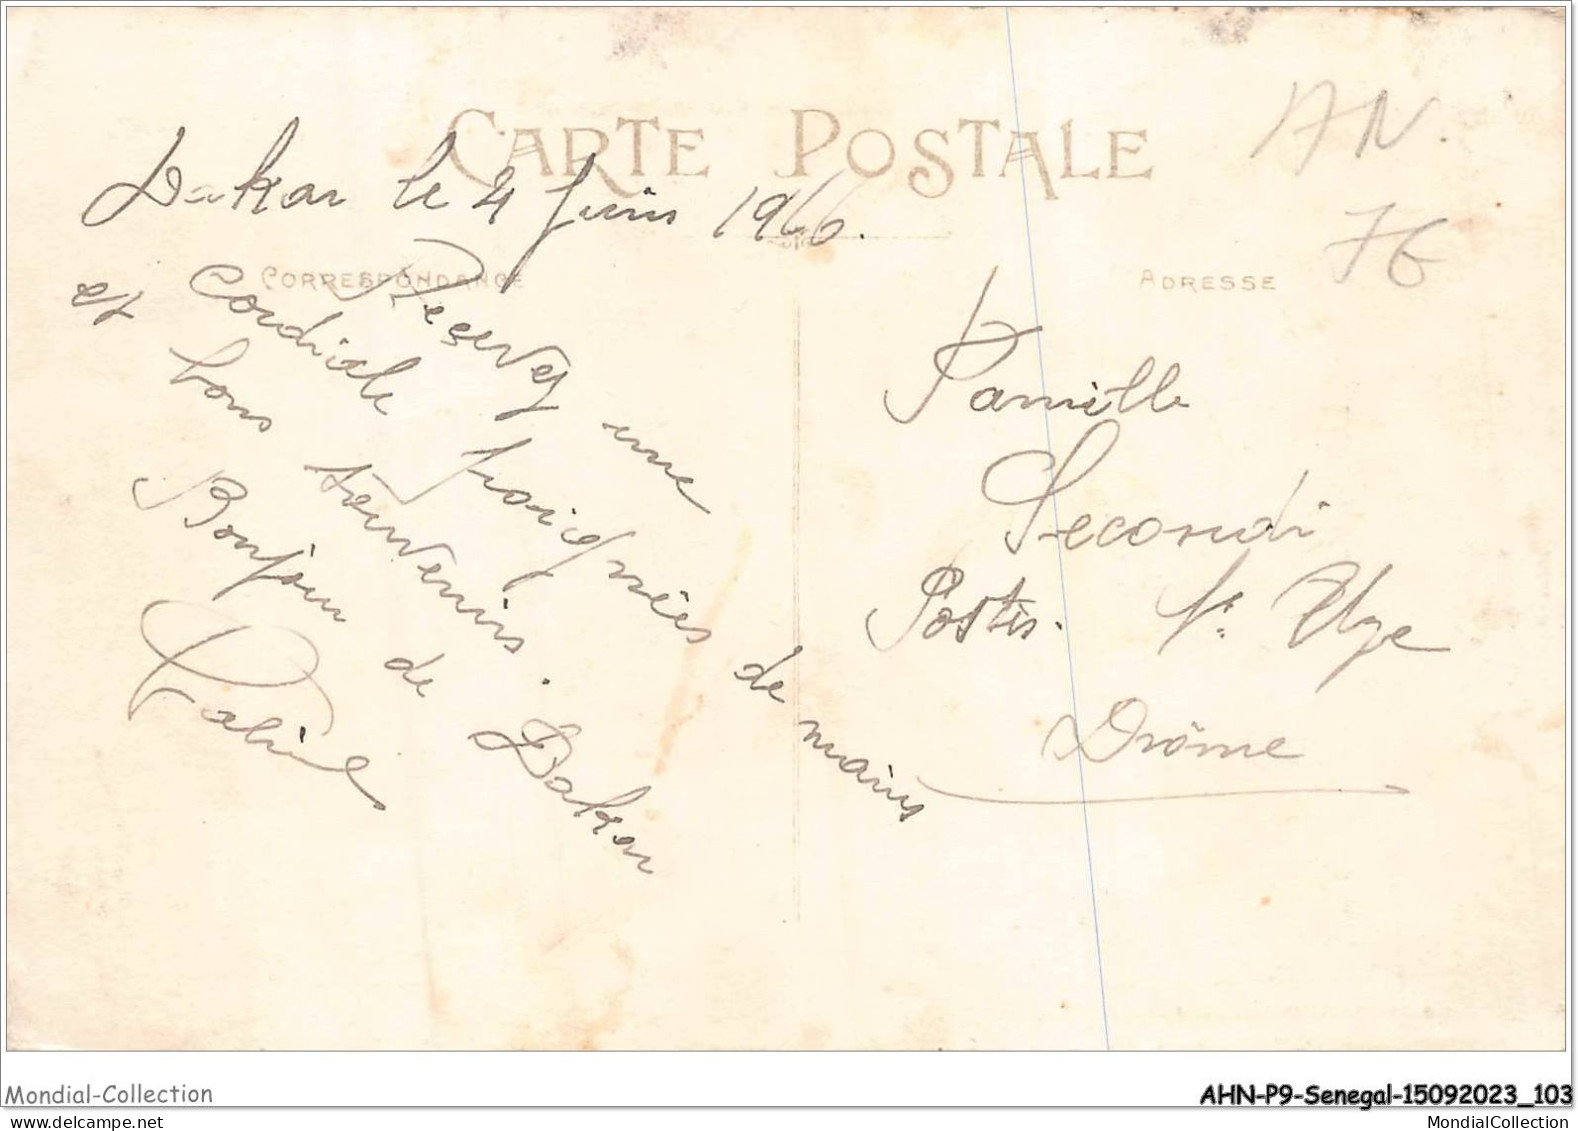 CARTE POSTALE
AN.
76
Dakar le 4 Juin 1946.
CORRESPONDANCE
ADRESSE
Recevez une
cordiale poignées de mains
et bons souvenirs.
Bonjour de Dakar
Famille
Secondi
Postes. St. Uze
Drôme
Mondial-Collection
AHN-P9-Senegal-15092023_103
www.delcampe.net
MondialCollection